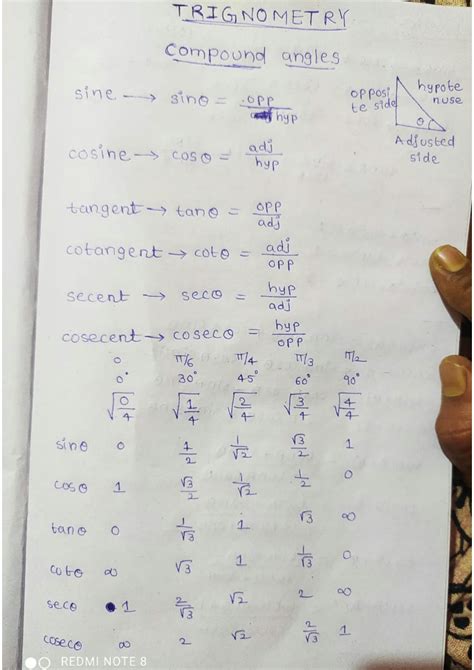 TRIGNOMETRY
compound angles
sine → sinθ = opp/hyp
opposi
te side
hypote
nuse
θ
Adjusted
side
cosine → cosθ = adj/hyp
tangent → tanθ = opp/adj
cotangent → cotθ = adj/opp
secent → secθ = hyp/adj
cosecent → cosecθ = hyp/opp
0 π/6 π/4 π/3 π/2
0° 30° 45° 60° 90°
√(0/4) √(1/4) √(2/4) √(3/4) √(4/4)
sinθ 0 1/2 1/√2 √3/2 1
cosθ 1 √3/2 1/√2 1/2 0
tanθ 0 1/√3 1 √3 ∞
cotθ ∞ √3 1 1/√3 0
secθ 1 2/√3 √2 2 ∞
cosecθ ∞ 2 √2 2/√3 1
REDMI NOTE 8